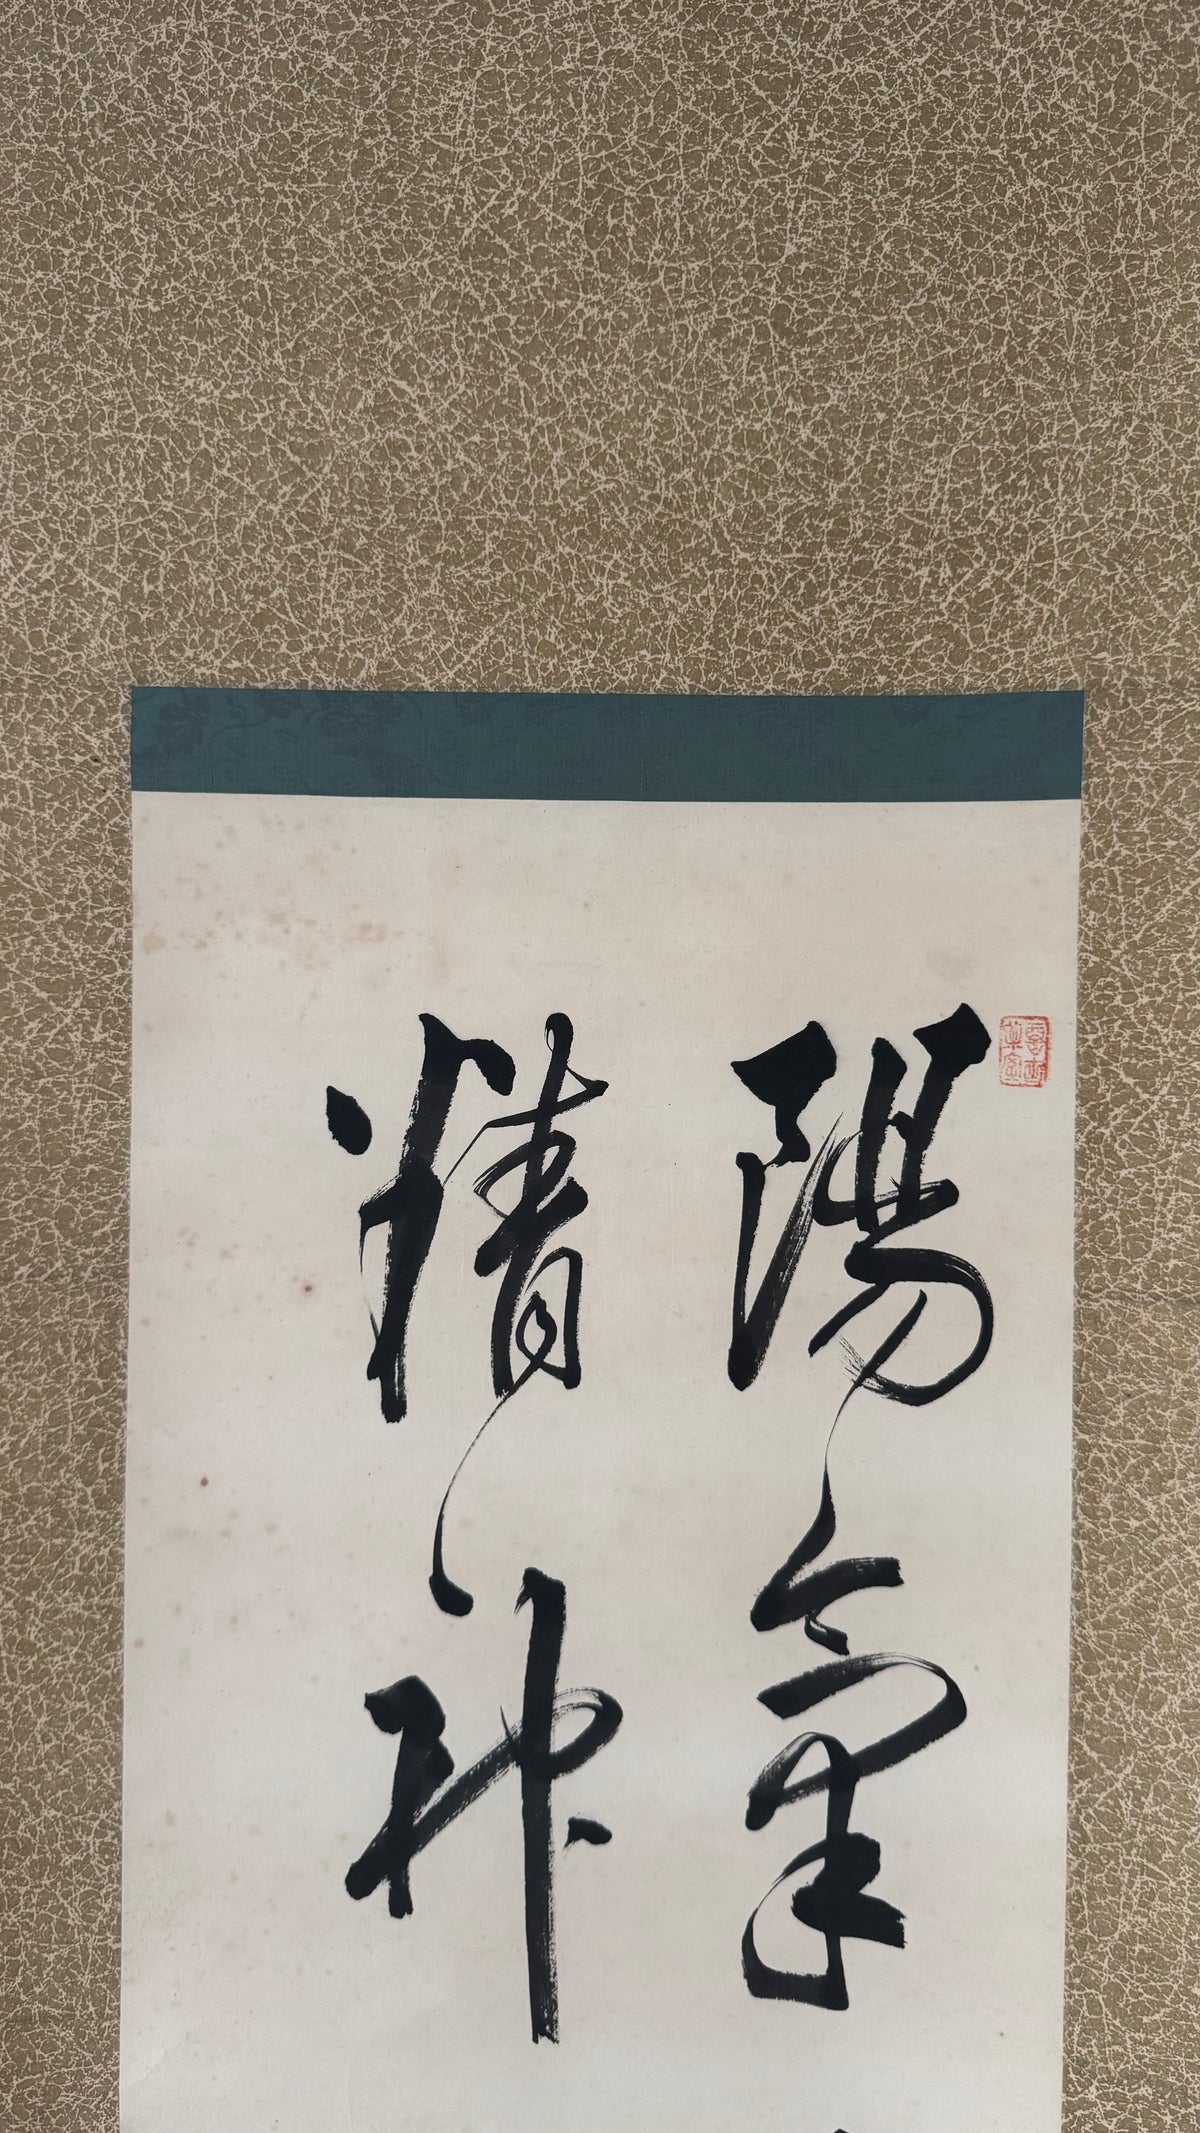 陽氣
精神